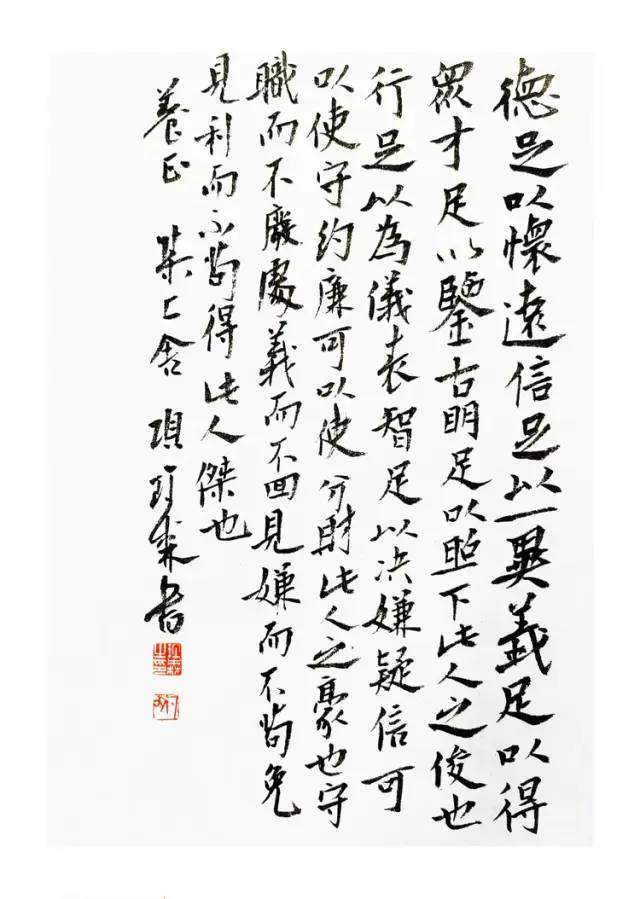 德足以懷遠信足以一異義足以得
眾才足以鑒古明足以照下此人之俊也
行足以為儀表智足以决嫌疑信可
以使守約廉可以使分財此人之豪也守
職而不廢處義而不回見嫌而不苟免
見利而不苟得此人傑也
養正 舍 項 書